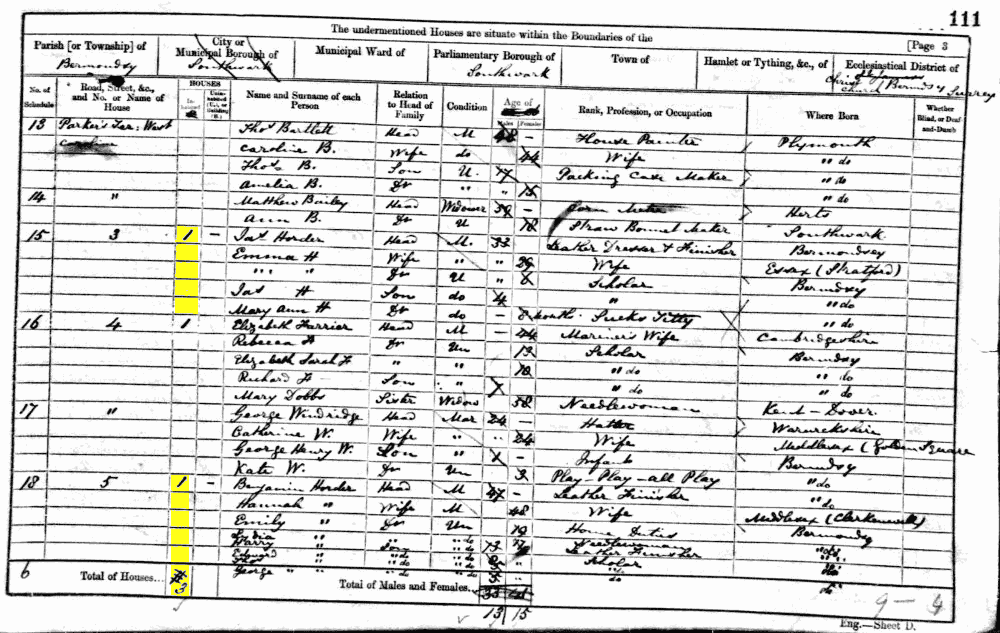 111
The undermentioned Houses are situate within the Boundaries of the
[Page 3
Parish [or Township] of
Bermondsey
City or Municipal Borough of
Southwark
Municipal Ward of
Parliamentary Borough of
Southwark
Town of
Hamlet or Tything, &c., of
Ecclesiastical District of
St James
Christ Church Bermdsy Surrey
No. of Schedule
Road, Street, &c., and No. or Name of House
HOUSES
Name and Surname of each Person
Relation to Head of Family
Condition
Age of
Males Females
Rank, Profession, or Occupation
Where Born
Whether Blind, or Deaf-and-Dumb
13 Parker's Ter: West Thos Bartlett Head M 48 – House Painter Plymouth
Caroline B. Wife do 44 Wife " do
Thos B. Son U. 17 Packing Case Maker " do
Amelia B. Dr " " 15 " do
14 " Matthew Bailey Head Widower 59 – Herts
Ann B. Dr U 18 Straw Bonnet Maker Southwark
15 3 1 – Jas Horder Head M. 33 Leather Dresser & Finisher Bermondsey
Emma H Wife " " 29 Wife Essex (Stratford)
" " " Dr U " 8 Scholar Bermdsey
Jas H Son do 4 " " do
Mary Ann H Dr – 8 months Sucks Titty " do
16 4 1 Elizabeth Farrier Head M – 44 Mariner's Wife Cambridgeshire
Rebecca F Dr Un 13 Scholar Bermdsy
Elizabeth Sarah F " 10 " do " do
Richard F Son " " do " do
Mary Dobbs Sister Widow 58 Needlewoman Kent – Dover
17 " George Windridge Head Mar 24 – Hatter Warwickshire
Catherine W. Wife " " 24 Wife Middlesex (Golden Square
George Henry W. Son – Infant Bermdsy
Kate W. Dr Un 3 Play – Play – all Play " do
18 5 1 – Benjamin Horder Head M 47 – Leather Finisher " do
Hannah " Wife M 48 Wife Middlesex (Clerkenwell)
Emily " Dr Un 19 Home Duties Bermondsy
Lydia " " " do Needlewoman " do
Harry " Son " do 13 Leather Finisher
Edward " " do " do Scholar
Thos " " do " do
George " " " do " do do do
6 Total of Houses... 3
Total of Males and Females...
13 15
9 – 4
Eng.—Sheet D.